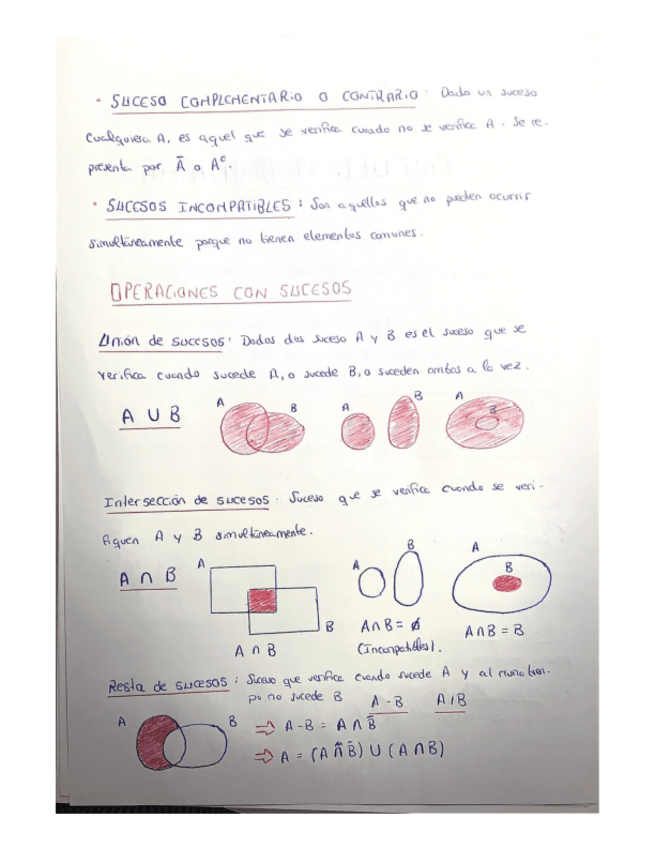 · SUCESO COMPLEMENTARIO O CONTRARIO: Dado un suceso
cualquiera A, es aquel que se verifica cuando no se verifica A. Se re-
presenta por Ā o Aᶜ.
· SUCESOS INCOMPATIBLES: Son aquellos que no pueden ocurrir
simultáneamente porque no tienen elementos comunes.
OPERACIONES CON SUCESOS
Unión de sucesos: Dados dos suceso A y B es el suceso que se
verifica cuando sucede A, o sucede B, o suceden ambos a la vez.
A ∪ B
A B A B A B
Intersección de sucesos. Suceso que se verifica cuando se veri-
fiquen A y B simultáneamente.
A ∩ B
A B A B A B
A ∩ B
A∩B = ∅
(Incompatibles).
A∩B = B
Resta de sucesos: Suceso que verifica cuando sucede A y al mismo tiem-
po no sucede B A - B A / B
A B
⇒ A-B = A ∩ B̄
⇒ A = (A ∩ B̄) ∪ (A ∩ B)